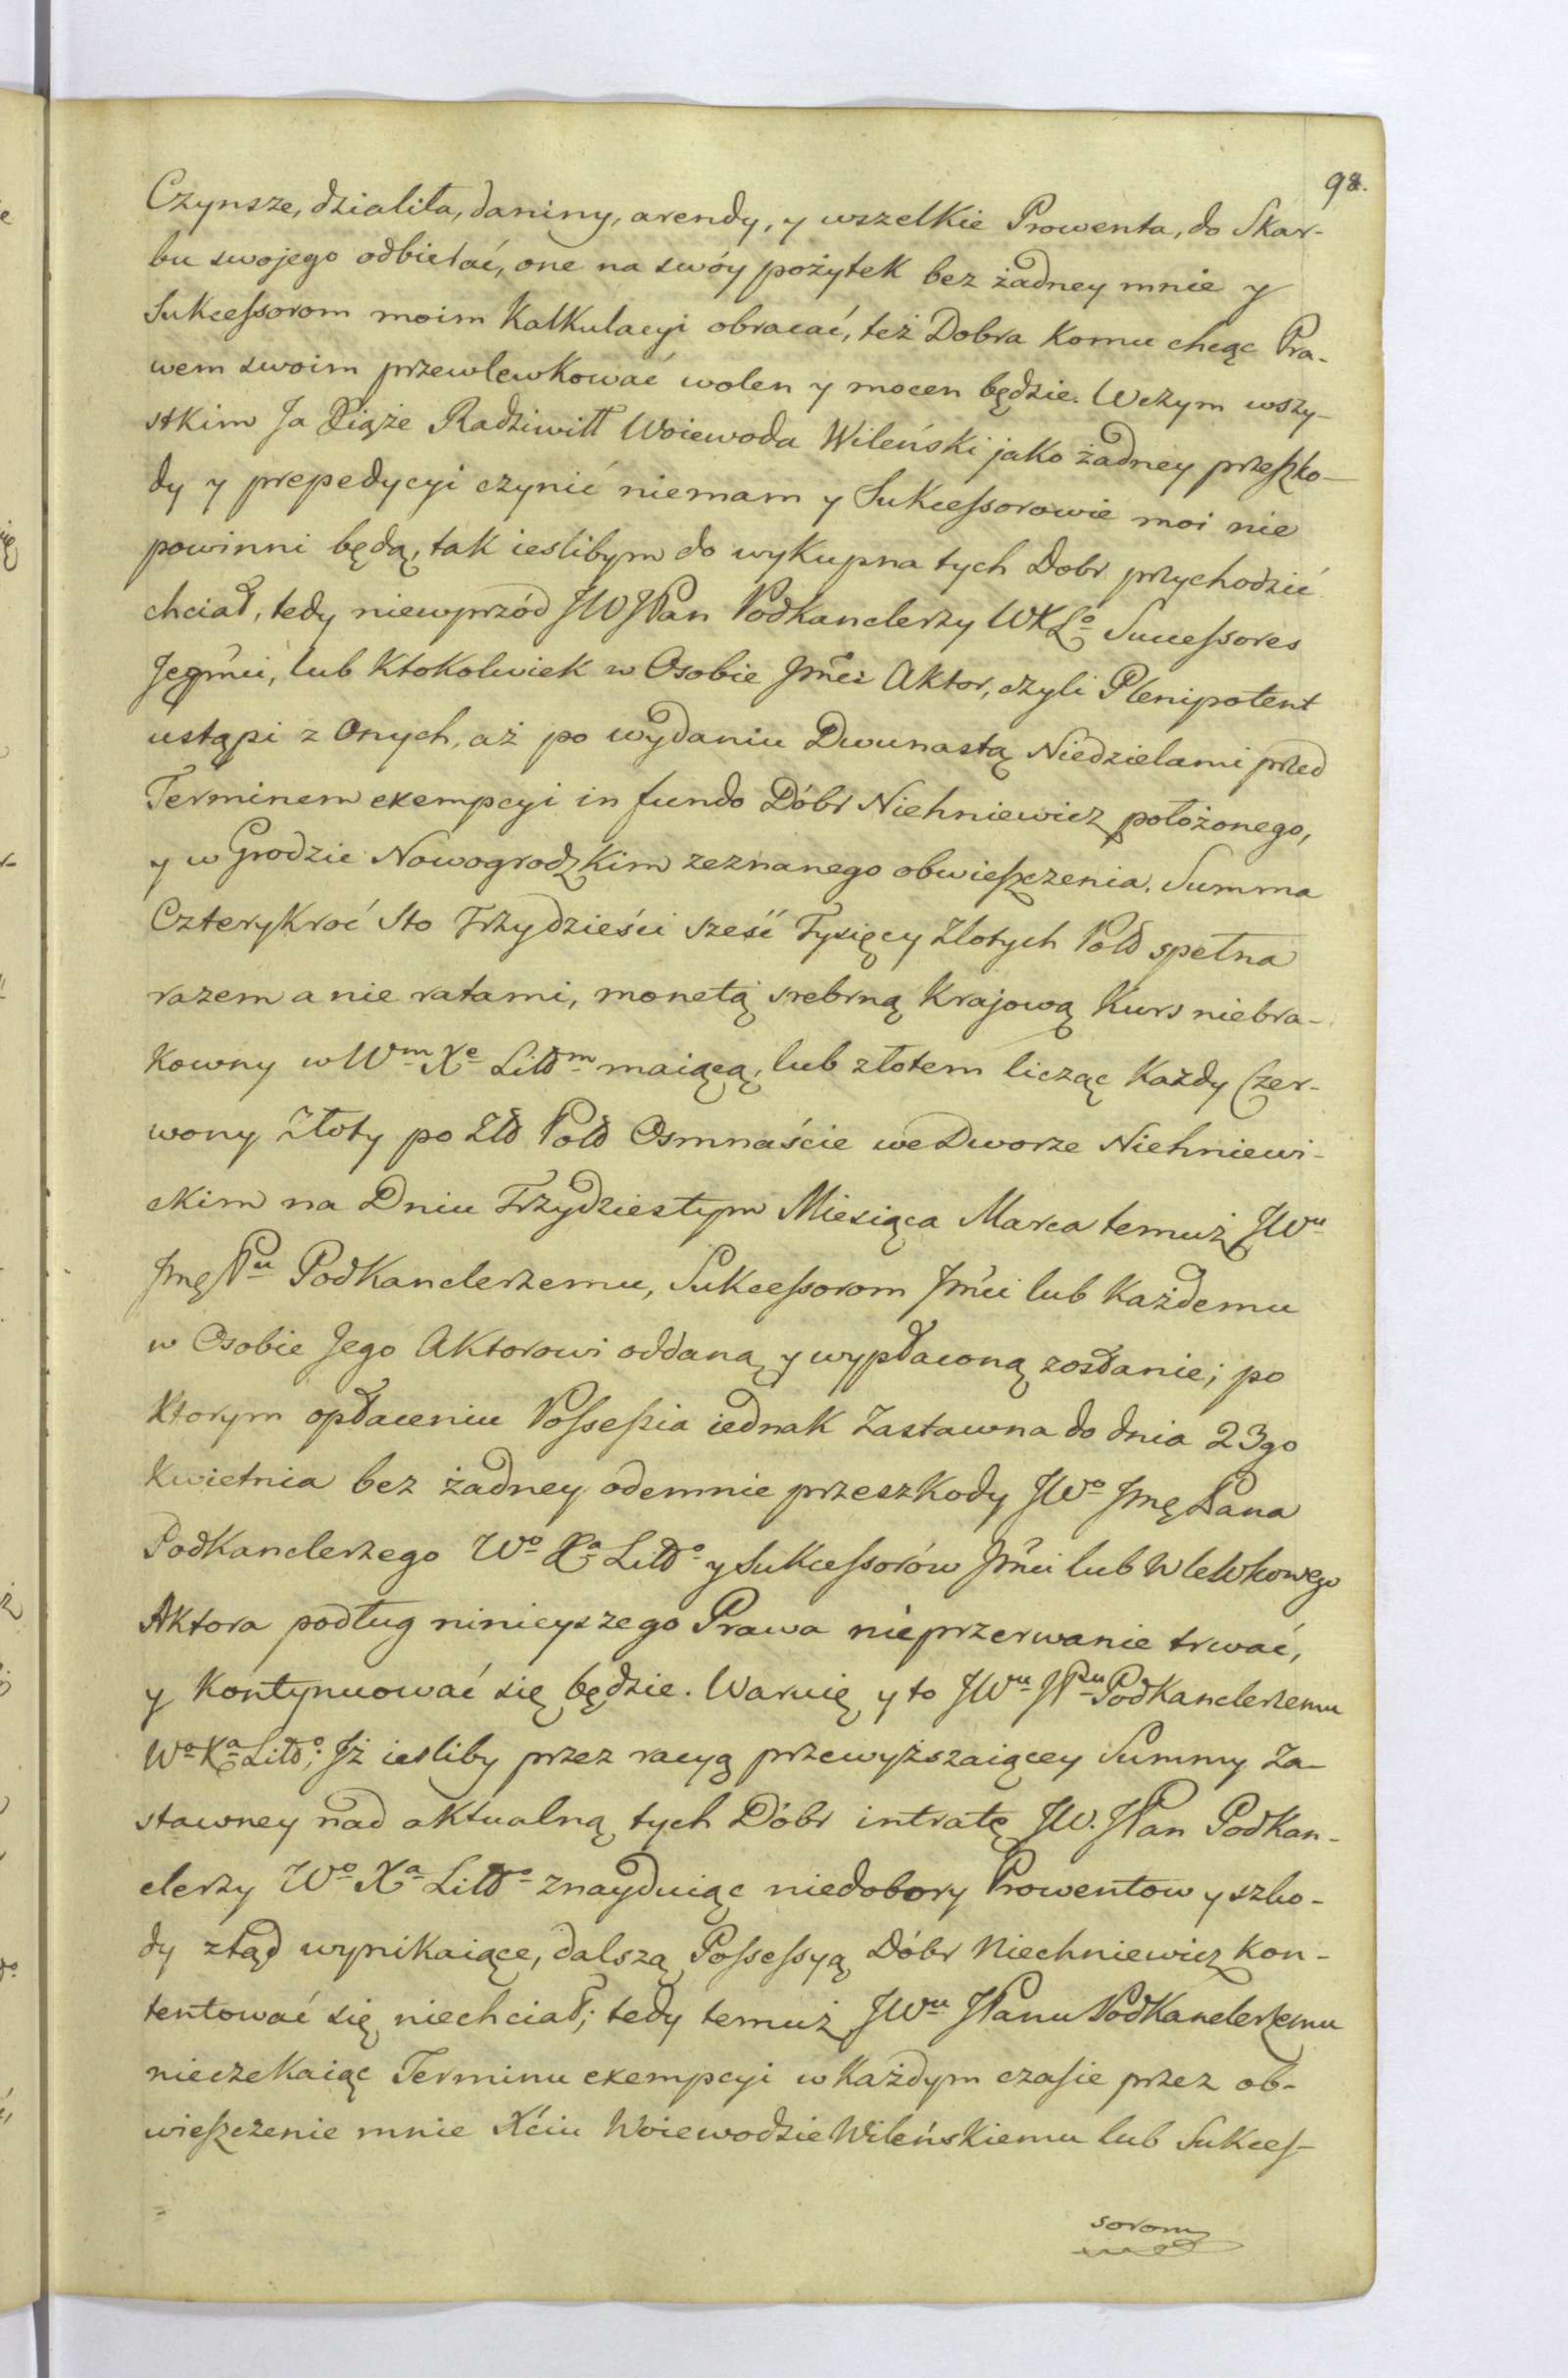 98.
Czynsze, dzialiła, daniny, arendy, y wszelkie Prowenta, do Skar-
bu swojego odbierać, one na swóy pożytek bez żadney mnie y
Sukcessorom moim Kalkulacyi obracać, też Dobra Komu chcąc Pra-
wem swoim przewlewkować wolen y mocen będzie. W czym wszy-
stkim Ja Xiąże Radziwiłł Woiewoda Wileński jako żadney przeszko-
dy y prepedycyi czynić niemam y Sukcessorowie moi nie
powinni będą, tak iesłibym do wykupna tych Dobr przychodzić
chciał, tedy niewprzód JW JPan Podkanclerzy WXLo Sucessores
Jegomci, lub Ktokolwiek w Osobie Jmci Aktor, czyli Plenipotent
ustąpi z Onych, aż po wydaniu Dwunastą Niedzielami przed
Terminem exempcyi in fundo Dóbr Niehniewicz położonego,
y w Grodzie Nowogrodzkim zeznanego obwieszczenia. Summa
Czterykroć Sto Trzydzieści sześć Tysięcy Złotych Pold spełna
razem a nie ratami, monetą srebrną Krajową Kurs niebra-
kowny w Wm Xe Littm maiącą, lub złotem licząc Każdy Czer-
wony Złoty po Złd Pold Osmnaście we Dworze Niehniewi-
ckim na Dniu Trzydziestym Miesiąca Marca temuż JWu
Jmę Pu Podkanclerzemu, Sukcessorom Jmci lub Każdemu
w Osobie Jego Aktorowi oddaną y wypłaconą zostanie; po
Ktorym opłaceniu Possessia iednak Zastawna do dnia 23go
Kwietnia bez żadney odemnie przeszkody JWo Jmę Pana
Podkanclerzego Wo Xa Litto y Sukcessorów Jmci lub Wlewkowego
Aktora podług ninieyszego Prawa nieprzerwanie trwać,
y Kontynuować się będzie. Waruię y to JWu JPu Podkanclerzemu
Wo Xa Litto; Jż iesliby przez racyą przewyższaiącey Summy Za-
stawney nad aktualną tych Dóbr intratę JW. JPan Podkan-
clerzy Wo Xa Litto znayduiąc niedobory Prowentow y szko-
dy ztąd wynikaiące, dalszą Possessyą Dóbr Niechniewicz kon-
tentować się niechciał; tedy temuż JWu JPanu Podkanclerzemu
nieczekaiąc Terminu exempcyi w Każdym czasie przez ob-
wieszczenie mnie Xciu Woiewodzie Wileńskiemu lub Sukces-
sorom